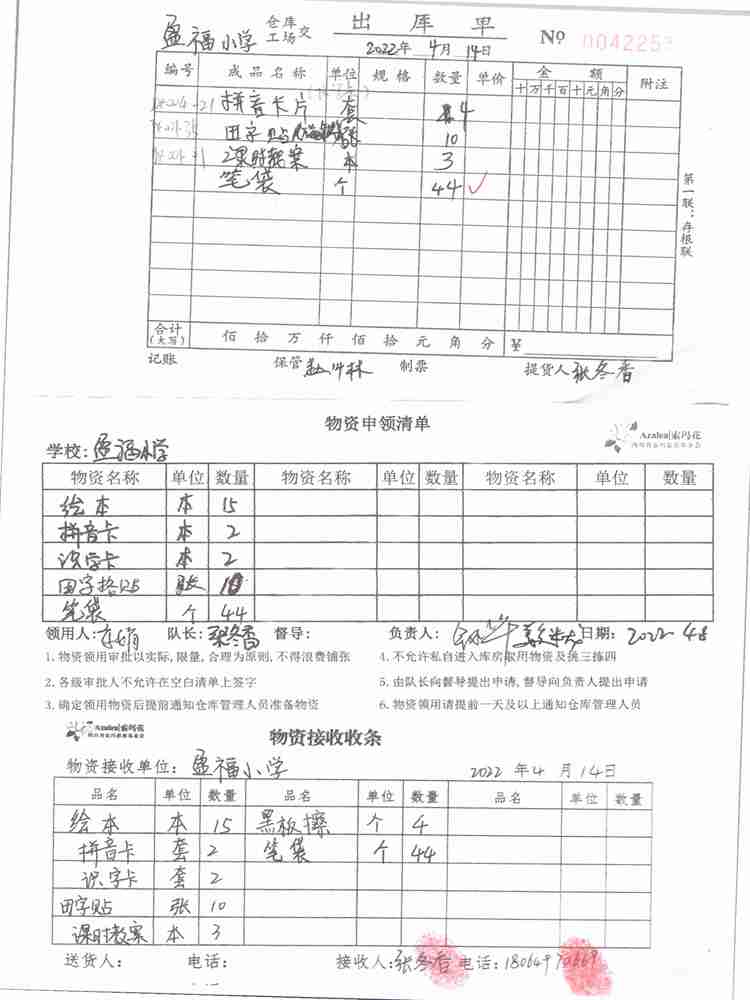 盈福小学 仓库 工场 交 出库单 No 0042253
2022年 4月 14日
编号 成品名称 单位 规格 数量 单价 金额 附注
十 万 千 百 十 元 角 分
拼音卡片 套 4
田字贴 10
课时教案 本 3
笔袋 个 44 ✓
第一联：存根联
合计(大写) 佰 拾 万 仟 佰 拾 元 角 分 ¥
记账 保管 制票 提货人 张冬香
物资申领清单
Azalea|索玛花
学校: 盈福小学
物资名称 单位 数量 物资名称 单位 数量 物资名称 单位 数量
绘本 本 15
拼音卡 本 2
识字卡 本 2
田字格贴 张 10
笔袋 个 44
领用人: 队长: 张冬香 督导: 负责人: 日期: 2022 4.8
1. 物资领用审批以实际, 限量, 合理为原则, 不得浪费铺张 4. 不允许私自进入库房取用物资及挑三拣四
2. 各级审批人不允许在空白清单上签字 5. 由队长向督导提出申请, 督导向负责人提出申请
3. 确定领用物资后提前通知仓库管理人员准备物资 6. 物资领用请提前一天及以上通知仓库管理人员
Azalea|索玛花
物资接收收条
物资接收单位: 盈福小学 2022 年 4 月 14 日
品名 单位 数量 品名 单位 数量 品名 单位 数量
绘本 本 15 黑板擦 个 4
拼音卡 套 2 笔袋 个 44
识字卡 套 2
田字贴 张 10
课时教案 本 3
送货人: 电话: 接收人: 张冬香 电话: